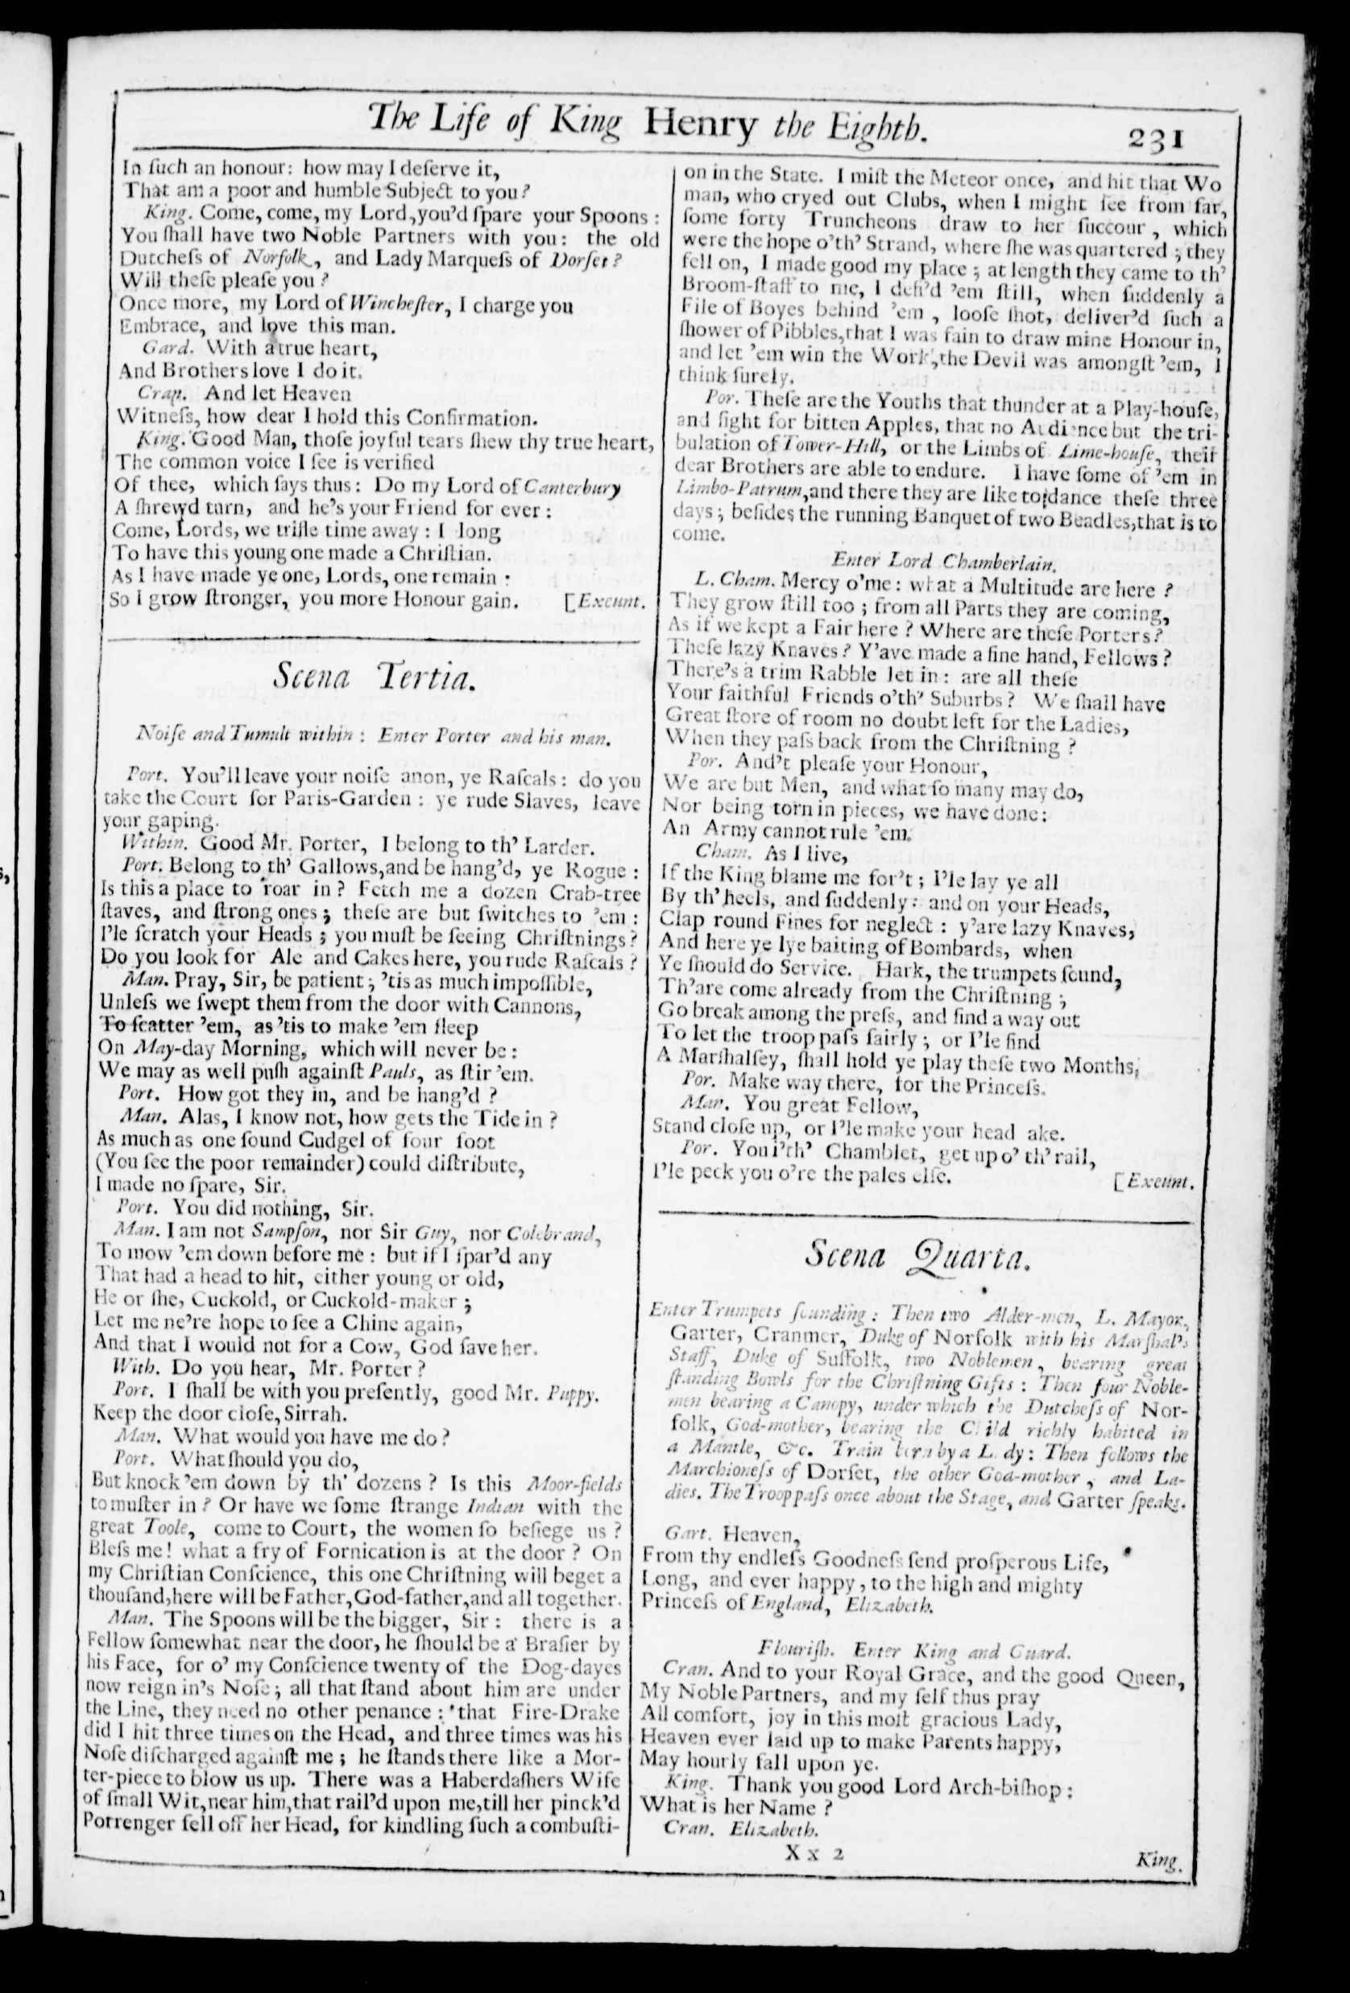 The Life of King Henry the Eighth.
231
In ſuch an honour: how may I deſerve it,
That am a poor and humble Subject to you?
King. Come, come, my Lord, you'd ſpare your Spoons:
You ſhall have two Noble Partners with you: the old
Dutcheſs of Norfolk, and Lady Marqueſs of Dorſet?
Will theſe pleaſe you?
Once more, my Lord of Wincheſter, I charge you
Embrace, and love this man.
Gard. With a true heart,
And Brothers love I do it.
Cran. And let Heaven
Witneſs, how dear I hold this Confirmation.
King. Good Man, thoſe joyful tears ſhew thy true heart,
The common voice I ſee is verified
Of thee, which ſays thus: Do my Lord of Canterbury
A ſhrewd turn, and he's your Friend for ever:
Come, Lords, we trifle time away: I long
To have this young one made a Chriſtian.
As I have made ye one, Lords, one remain:
So I grow ſtronger, you more Honour gain. [Exeunt.
Scena Tertia.
Noiſe and Tumult within: Enter Porter and his man.
Port. You'll leave your noiſe anon, ye Raſcals: do you
take the Court for Paris-Garden: ye rude Slaves, leave
your gaping.
Within. Good Mr. Porter, I belong to th' Larder.
Port. Belong to th' Gallows, and be hang'd, ye Rogue:
Is this a place to roar in? Fetch me a dozen Crab-tree
ſtaves, and ſtrong ones; theſe are but ſwitches to 'em:
I'le ſcratch your Heads; you muſt be ſeeing Chriſtnings?
Do you look for Ale and Cakes here, you rude Raſcals?
Man. Pray, Sir, be patient; 'tis as much impoſſible,
Unleſs we ſwept them from the door with Cannons,
To ſcatter 'em, as 'tis to make 'em ſleep
On May-day Morning, which will never be:
We may as well puſh againſt Pauls, as ſtir 'em.
Port. How got they in, and be hang'd?
Man. Alas, I know not, how gets the Tide in?
As much as one ſound Cudgel of four foot
(You ſee the poor remainder) could diſtribute,
I made no ſpare, Sir.
Port. You did nothing, Sir.
Man. I am not Sampſon, nor Sir Guy, nor Colebrand,
To mow 'em down before me: but if I ſpar'd any
That had a head to hit, either young or old,
He or ſhe, Cuckold, or Cuckold-maker;
Let me ne're hope to ſee a Chine again,
And that I would not for a Cow, God ſave her.
With. Do you hear, Mr. Porter?
Port. I ſhall be with you preſently, good Mr. Puppy.
Keep the door cloſe, Sirrah.
Man. What would you have me do?
Port. What ſhould you do,
But knock 'em down by th' dozens? Is this Moor-fields
to muſter in? Or have we ſome ſtrange Indian with the
great Toole, come to Court, the women ſo beſiege us?
Bleſs me! what a fry of Fornication is at the door? On
my Chriſtian Conſcience, this one Chriſtning will beget a
thouſand, here will be Father, God-father, and all together.
Man. The Spoons will be the bigger, Sir: there is a
Fellow ſomewhat near the door, he ſhould be a Braſier by
his Face, for o' my Conſcience twenty of the Dog-dayes
now reign in's Noſe; all that ſtand about him are under
the Line, they need no other penance: that Fire-Drake
did I hit three times on the Head, and three times was his
Noſe diſcharged againſt me; he ſtands there like a Mor-
ter-piece to blow us up. There was a Haberdaſhers Wife
of ſmall Wit, near him, that rail'd upon me, till her pinck'd
Porrenger fell off her Head, for kindling ſuch a combuſti-
on in the State. I miſt the Meteor once, and hit that Wo
man, who cryed out Clubs, when I might ſee from far,
ſome forty Truncheons draw to her ſuccour, which
were the hope o'th' Strand, where ſhe was quartered; they
fell on, I made good my place; at length they came to th'
Broom-ſtaff to me, I defi'd 'em ſtill, when ſuddenly a
File of Boyes behind 'em, looſe ſhot, deliver'd ſuch a
ſhower of Pibbles, that I was fain to draw mine Honour in,
and let 'em win the Work, the Devil was amongſt 'em, I
think ſurely.
Por. Theſe are the Youths that thunder at a Play-houſe,
and fight for bitten Apples, that no Audience but the tri-
bulation of Tower-Hill, or the Limbs of Lime-houſe, their
dear Brothers are able to endure. I have ſome of 'em in
Limbo-Patrum, and there they are like to dance theſe three
days; beſides the running Banquet of two Beadles, that is to
come.
Enter Lord Chamberlain.
L. Cham. Mercy o'me: what a Multitude are here?
They grow ſtill too; from all Parts they are coming,
As if we kept a Fair here? Where are theſe Porters?
Theſe lazy Knaves? Y'ave made a fine hand, Fellows?
There's a trim Rabble let in: are all theſe
Your faithful Friends o'th' Suburbs? We ſhall have
Great ſtore of room no doubt left for the Ladies,
When they paſs back from the Chriſtning?
Por. And't pleaſe your Honour,
We are but Men, and what ſo many may do,
Nor being torn in pieces, we have done:
An Army cannot rule 'em.
Cham. As I live,
If the King blame me for't; I'le lay ye all
By th' heels, and ſuddenly: and on your Heads,
Clap round Fines for neglect: y'are lazy Knaves,
And here ye lye baiting of Bombards, when
Ye ſhould do Service. Hark, the trumpets ſound,
Th'are come already from the Chriſtning;
Go break among the preſs, and find a way out
To let the troop paſs fairly; or I'le find
A Marſhalſey, ſhall hold ye play theſe two Months.
Por. Make way there, for the Princeſs.
Man. You great Fellow,
Stand cloſe up, or I'le make your head ake.
Por. You i'th' Chamblet, get up o' th' rail,
I'le peck you o're the pales elſe. [Exeunt.
Scena Quarta.
Enter Trumpets ſounding: Then two Alder-men, L. Mayor,
Garter, Cranmer, Duke of Norfolk with his Marſhal's
Staff, Duke of Suffolk, two Noblemen, bearing great
ſtanding Bowls for the Chriſtning Gifts: Then four Noble-
men bearing a Canopy, under which the Dutcheſs of Nor-
folk, God-mother, bearing the Child richly habited in
a Mantle, &c. Train born by a Lady: Then follows the
Marchioneſs of Dorſet, the other God-mother, and La-
dies. The Troop paſs once about the Stage, and Garter ſpeaks.
Gart. Heaven,
From thy endleſs Goodneſs ſend proſperous Life,
Long, and ever happy, to the high and mighty
Princeſs of England, Elizabeth.
Flouriſh. Enter King and Guard.
Cran. And to your Royal Grace, and the good Queen,
My Noble Partners, and my ſelf thus pray
All comfort, joy in this moſt gracious Lady,
Heaven ever laid up to make Parents happy,
May hourly fall upon ye.
King. Thank you good Lord Arch-biſhop:
What is her Name?
Cran. Elizabeth.
X x 2
King.